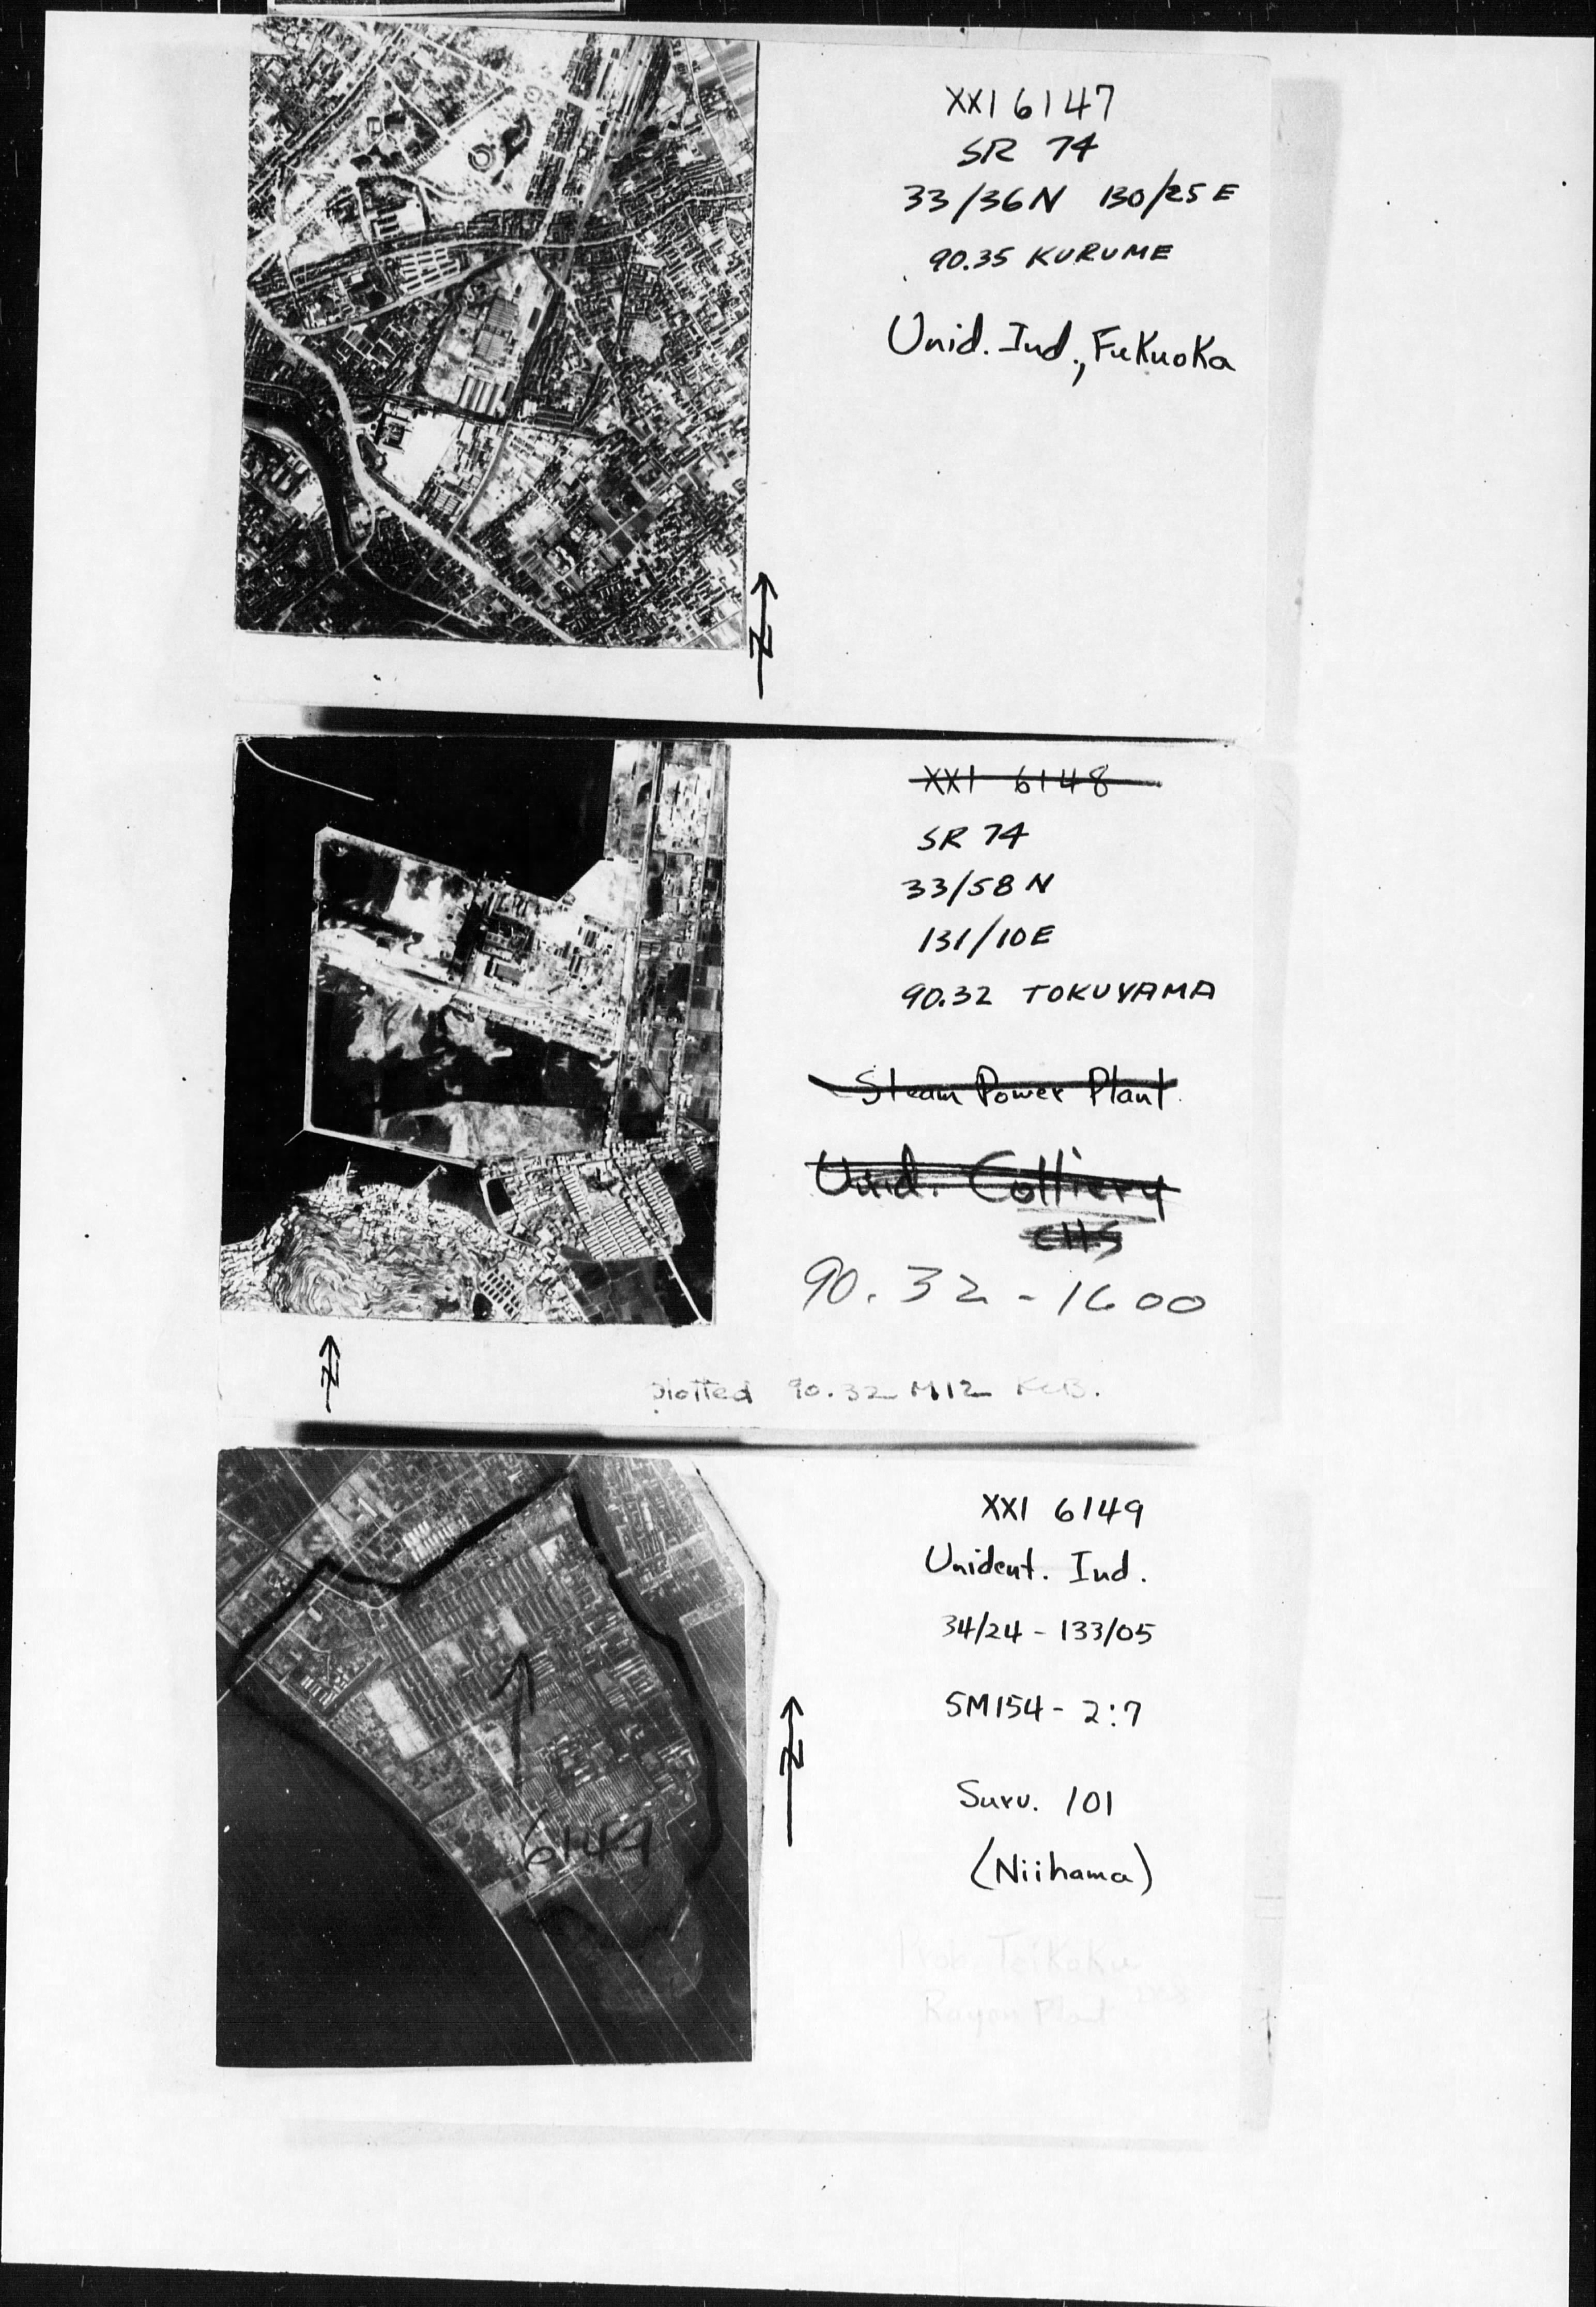 XXI 6147
SR 74
33/36N 130/25E
90.35 KURUME
Unid. Ind., Fukuoka
N
XXI 6148
SR 74
33/58N
131/10E
90.32 TOKUYAMA
Steam Power Plant
Unid. Colliery
90.32-1600
N
plotted 90.32 M12
XXI 6149
Unident. Ind.
34/24 - 133/05
5M154 - 2:7
N
Surv. 101
6149
(Niihama)
Prob. Teikoku
Rayon Plant